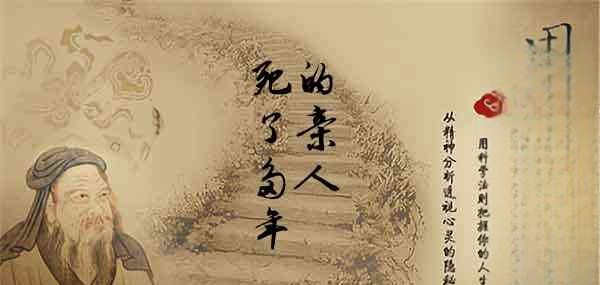 死了多年
的亲人
从精神分析透视心灵的隐秘
用科学法则把握你的人生